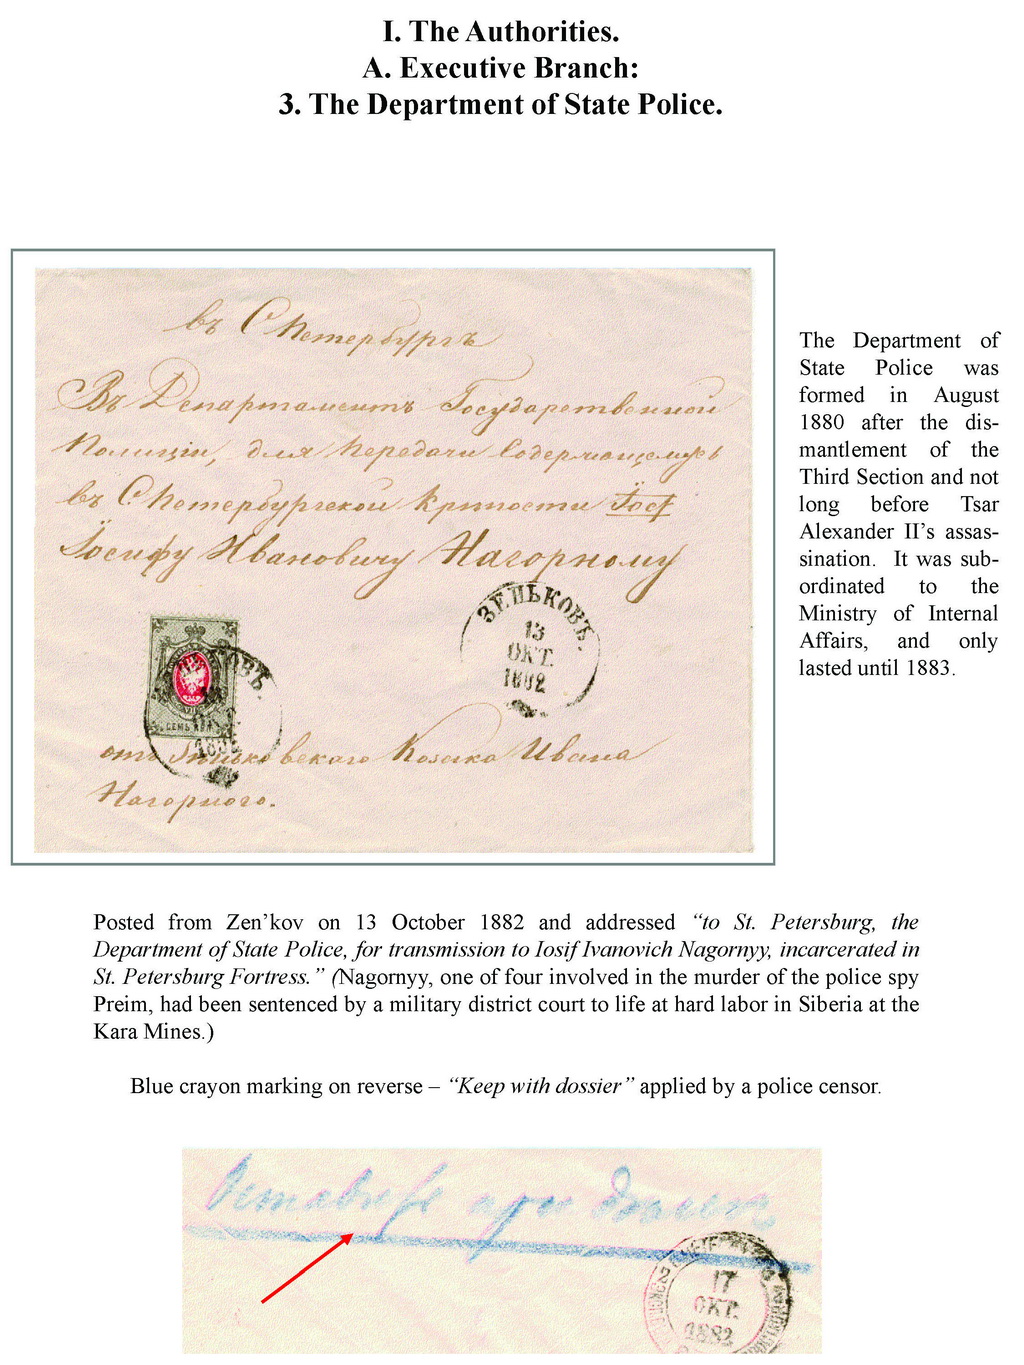 I. The Authorities.
A. Executive Branch:
3. The Department of State Police.
въ С Петербургъ
Въ Департаментъ Государственной
Полиціи, для передачи содержащемуся
въ С Петербургской крѣпости Iосі
Iосифу Ивановичу Нагорному
ЗЕНЬКОВЪ.
13
ОКТ.
1882
СЕМЬ КОП.
отъ Зѣньковскаго Козака Ивана
Нагорного.
The Department of
State Police was
formed in August
1880 after the dis-
mantlement of the
Third Section and not
long before Tsar
Alexander II’s assas-
sination. It was sub-
ordinated to the
Ministry of Internal
Affairs, and only
lasted until 1883.
Posted from Zen’kov on 13 October 1882 and addressed “to St. Petersburg, the
Department of State Police, for transmission to Iosif Ivanovich Nagornyy, incarcerated in
St. Petersburg Fortress.” (Nagornyy, one of four involved in the murder of the police spy
Preim, had been sentenced by a military district court to life at hard labor in Siberia at the
Kara Mines.)
Blue crayon marking on reverse – “Keep with dossier” applied by a police censor.
Оставить при досье
17
ОКТ.
1882